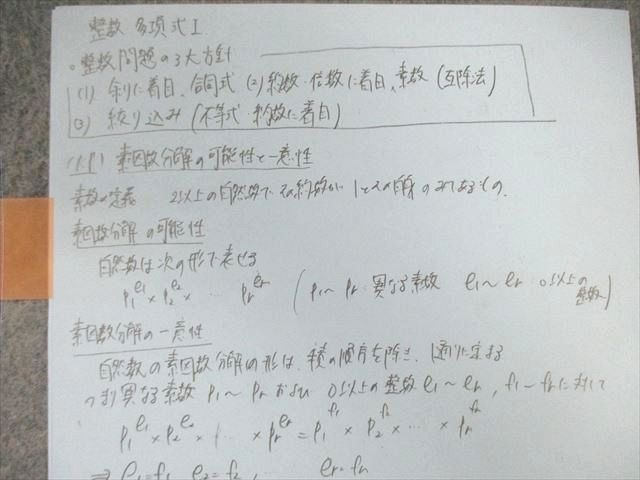 整数 多項式 I
○整数問題の3大方針
(1) 余りに着目、合同式 (2) 約数・倍数に着目、素数 (互除法)
(3) 絞り込み (不等式・約数に着目)
素因数分解の可能性と一意性
素数の定義 2以上の自然数でその約数が 1とその自身のみであるもの.
素因数分解の可能性
自然数は次の形で表せる
p₁^e₁ × p₂^e₂ ... pᵣ^eᵣ (p₁〜pᵣ 異なる素数 e₁〜eᵣ 0以上の整数)
素因数分解の一意性
自然数の素因数分解の形は、積の順序を除き、1通りに定まる
つまり異なる素数 p₁〜pᵣ および 0以上の整数 e₁〜eᵣ, f₁〜fᵣに対して
p₁^e₁ × p₂^e₂ × ... × pᵣ^eᵣ = p₁^f₁ × p₂^f₂ × ... × pᵣ^fᵣ
⇒ e₁=f₁, e₂=f₂, eᵣ=fᵣ